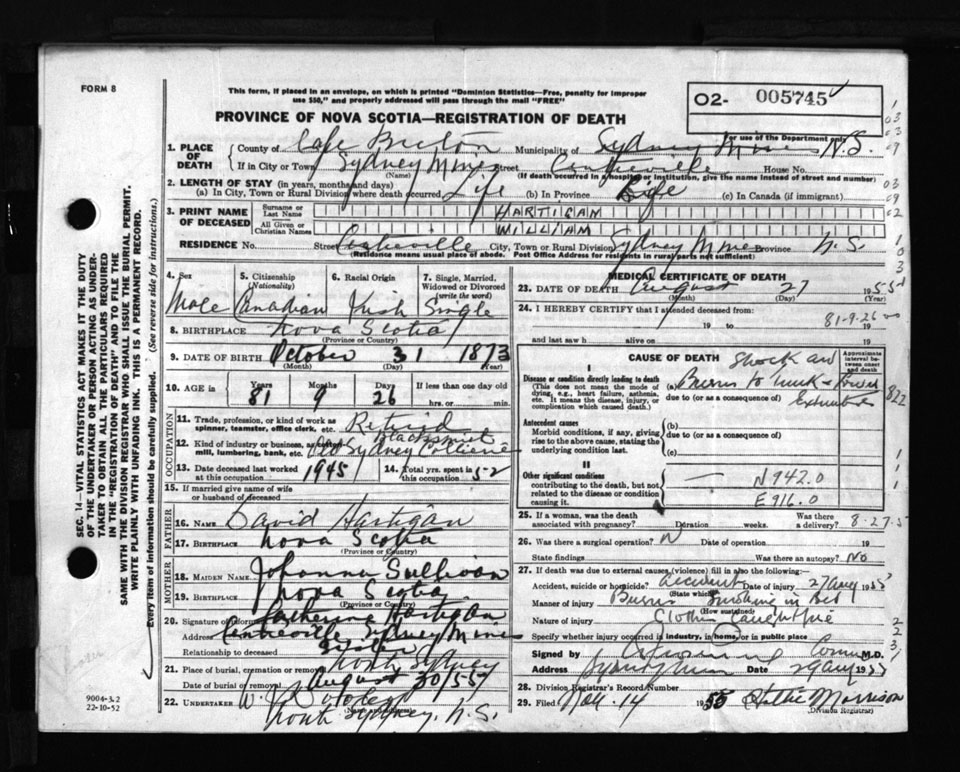 FORM 8
This form, if placed in an envelope, on which is printed "Dominion Statistics—Free, penalty for improper
use $50," and properly addressed will pass through the mail "FREE"
PROVINCE OF NOVA SCOTIA—REGISTRATION OF DEATH
02- 005745
For use of the Department only
1. PLACE OF DEATH
County of Cape Breton Municipality of Sydney Mines N.S.
If in City or Town Sydney Mines Street Centreville House No.
(Name) (If death occurred in a hospital or institution, give the name instead of street and number)
2. LENGTH OF STAY (in years, months and days)
(a) In City, Town or Rural Division where death occurred Life (b) In Province Life (c) In Canada (if immigrant)
3. PRINT NAME OF DECEASED
Surname or Last Name HARTIGAN
All Given or Christian Names WILLIAM
RESIDENCE No. Street Centreville City, Town or Rural Division Sydney Mines Province N.S.
(Residence means usual place of abode. Post Office Address for residents in rural parts not sufficient)
4. Sex
Male
5. Citizenship (Nationality)
Canadian
6. Racial Origin
Irish
7. Single, Married, Widowed or Divorced (write the word)
Single
8. BIRTHPLACE Nova Scotia
(Province or Country)
9. DATE OF BIRTH October 31 1873
(Month) (Day) (Year)
10. AGE in Years Months Days If less than one day old
81 9 26 hrs. or min.
OCCUPATION
11. Trade, profession, or kind of work as spinner, teamster, office clerk, etc. Retired
Blacksmith
12. Kind of industry or business, as mill, lumbering, bank, etc. Old Sydney Collieries
13. Date deceased last worked at this occupation 1945
14. Total yrs. spent in this occupation 52
15. If married give name of wife or husband of deceased
FATHER
16. NAME David Hartigan
17. BIRTHPLACE Nova Scotia
(Province or Country)
MOTHER
18. MAIDEN NAME Johanna Sullivan
19. BIRTHPLACE Nova Scotia
(Province or Country)
20. Signature of informant Catherine Hartigan
Address Centreville Sydney Mines
Relationship to deceased Sister
21. Place of burial, cremation or removal North Sydney
Date of burial or removal August 30/55
22. UNDERTAKER
(Name and address)
North Sydney, N.S.
MEDICAL CERTIFICATE OF DEATH
23. DATE OF DEATH August 27 1955
(Month) (Day) (Year)
24. I HEREBY CERTIFY that I attended deceased from:
19 to 19
81-9-26
and last saw h alive on 19
CAUSE OF DEATH
Approximate interval between onset and death
I
Disease or condition directly leading to death
(This does not mean the mode of dying, e.g., heart failure, asthenia, etc. It means the disease, injury, or complication which caused death.)
Shock and
(a) Burns to trunk & lower
due to (or as a consequence of) Extremities
822
Antecedent causes
Morbid conditions, if any, giving rise to the above cause, stating the underlying condition last.
(b)
due to (or as a consequence of)
(c)
II
Other significant conditions contributing to the death, but not related to the disease or condition causing it.
N942.0
E916.0
25. If a woman, was the death associated with pregnancy? Duration weeks. Was there a delivery?
8-27-5
26. Was there a surgical operation? N Date of operation 19
State findings Was there an autopsy? No
27. If death was due to external causes (violence) fill in also the following:
Accident, suicide or homicide? accident Date of injury 27 Aug 1955
(State which)
Manner of injury Burns Smoking in Bed
(How sustained)
Nature of injury Clothes caught fire
Specify whether injury occurred in industry, in home, or in public place
Signed by M.D.
Address Sydney Mines 29 Aug 1955
28. Division Registrar's Record Number
29. Filed Nov. 14 1955 Hattie Morrison
(Division Registrar)
SEC. 14—VITAL STATISTICS ACT MAKES IT THE DUTY
OF THE UNDERTAKER OR PERSON ACTING AS UNDERTAKER TO OBTAIN ALL THE PARTICULARS REQUIRED
IN THE "REGISTRATION OF DEATH" AND TO FILE THE
SAME WITH THE DIVISION REGISTRAR WHO SHALL ISSUE THE BURIAL PERMIT.
WRITE PLAINLY WITH UNFADING INK. THIS IS A PERMANENT RECORD.
Every item of information should be carefully supplied. (See reverse side for instructions.)
9004-3.2
22-10-52